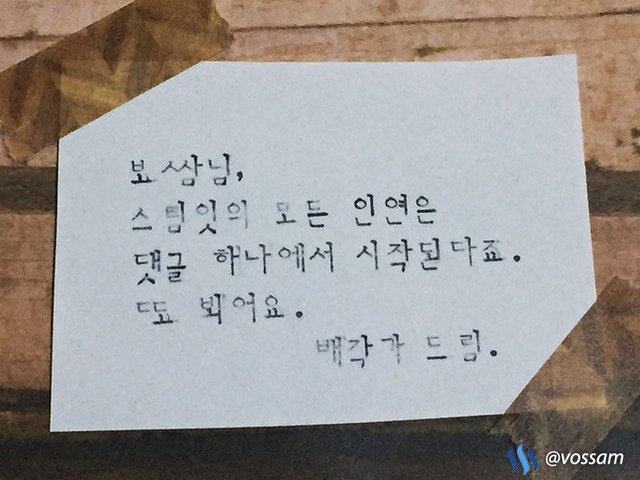 보쌈님,
스팀잇의 모든 인연은
댓글 하나에서 시작된다죠.
또 뵈어요.
배각가 드림.
@vossam